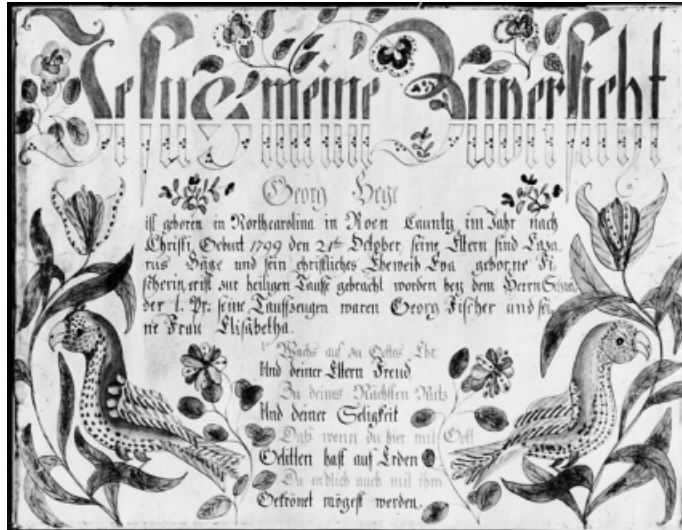 Jesus meine Zuversicht
Georg Hege
ist geboren in Northcarolina in Roen Caunty im Jahr nach
Christi Geburt 1799 den 21ᵗ October, seine Eltern sind Laza-
rus Häge und sein christliches Eheweib Eva geborne Fi-
scherin, er ist zur heiligen Tauffe gebracht worden bey dem Herrn
der l. Pr: seine Tauffzeugen waren Georg Fischer und sei-
ne Frau Elisäbetha.
Wachs auf zu Gottes Ehr
Und deiner Eltern Freud
Zu deines Nächsten Nutz
Und deiner Seligkeit
Daß wenn du hier mit Gott
Gelitten hast auf Erden
Du endlich auch mit ihm
Gekrönet mögest werden.